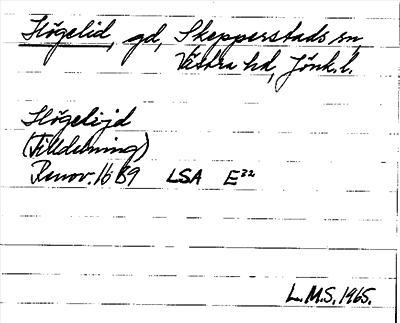 Högelid, gd, Skepperstads sn,
Västra hd, Jönk. l.
Högelijd
(Tilldelning)
Renov. 1689 LSA E²²
L.M.S. 1965.